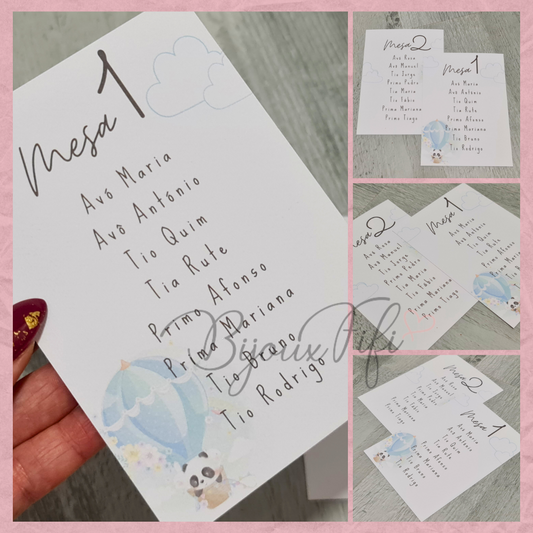 Mesa 1
Avó Maria
Avô António
Tio Quim
Tia Rute
Primo Afonso
Prima Mariana
Tio Bruno
Tio Rodrigo
Bijoux Fifi
Mesa 2
Avó Rosa
Avô Manuel
Tio Jorge
Primo Pedro
Tia Maria
Tio Fábio
Prima Mariana
Primo Tiago
Mesa 1
Avó Maria
Avô António
Tio Quim
Tia Rute
Primo Afonso
Prima Mariana
Tio Bruno
Tio Rodrigo
Mesa 2
Avó Rosa
Avô Manuel
Tio Jorge
Primo Pedro
Tia Maria
Tio Fábio
Prima Mariana
Primo Tiago
Mesa 1
Avó Maria
Avô António
Tio Quim
Tia Rute
Primo Afonso
Prima Mariana
Tio Bruno
Tio Rodrigo
Mesa 2
Avó Rosa
Avô Manuel
Tio Jorge
Tia Maria
Tio Fábio
Prima Mariana
Primo Tiago
Mesa 1
Avó Maria
Avô António
Tio Quim
Tia Rute
Primo Afonso
Prima Mariana
Tio Bruno
Tio Rodrigo